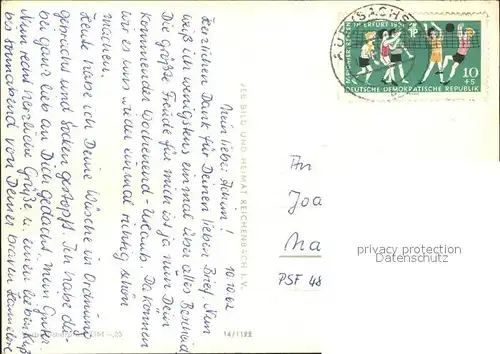 10.10.62
Mein lieber Achim!
Herzlichen Dank für Deinen lieben Brief. Nun
weiß ich wenigstens einmal über alles Bescheid
Die größte Freude für mich ist ja nun Dein
kommender Wochenend-Urlaub. Da können
wir es uns wieder einmal richtig schön
machen.
Heute habe ich Deine Wäsche in Ordnung
gebracht und Socken gestopft. Ich habe da-
bei ganz lieb an Dich gedacht, mein Guter.
Nun recht herzliche Grüße u. einen lieben Kuß
bis Sonnabend von Deiner braven Hannelore
VEB BILD UND HEIMAT REICHENBACH I. V.
14/1122
DEUTSCHE DEMOKRATISCHE REPUBLIK
10
+5
An
Joa
Ma
PSF 48
privacy protection
Datenschutz